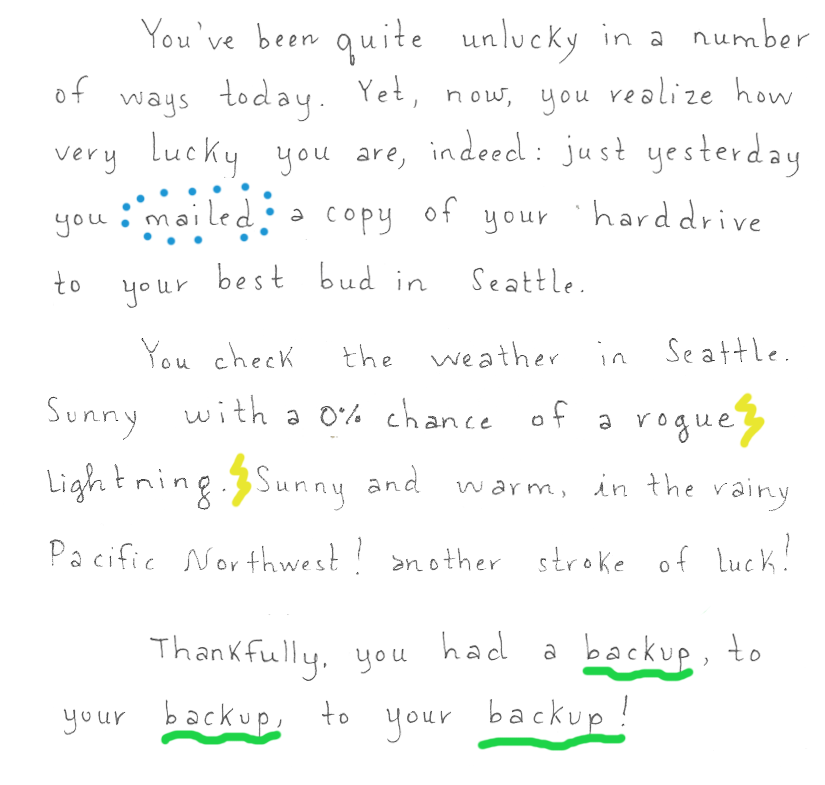 You've been quite unlucky in a number
of ways today. Yet, now, you realize how
very lucky you are, indeed: just yesterday
you mailed a copy of your harddrive
to your best bud in Seattle.
You check the weather in Seattle.
Sunny with a 0% chance of a rogue
Lightning. Sunny and warm, in the rainy
Pacific Northwest! another stroke of luck!
Thankfully, you had a backup, to
your backup, to your backup!